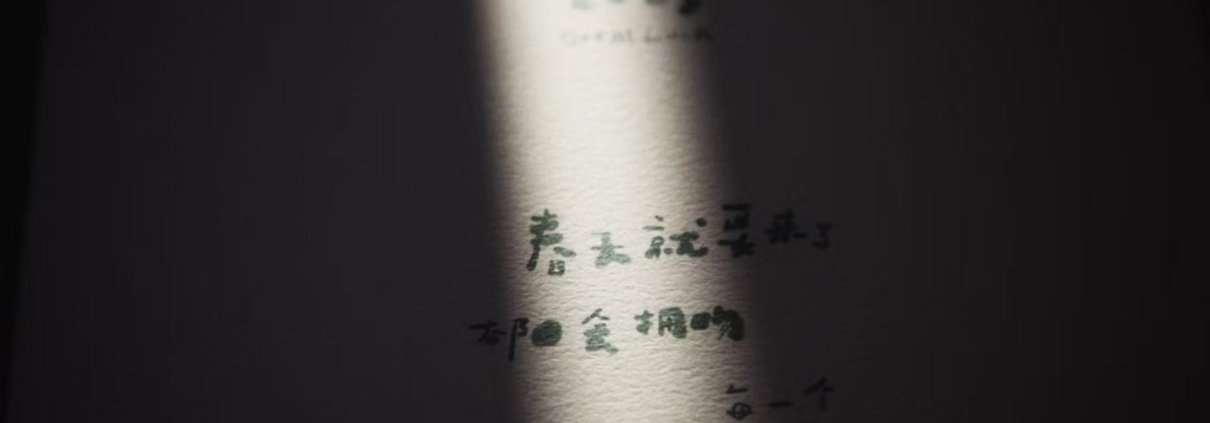 Great Luck
春天就要来了
都会拥吻
每一个